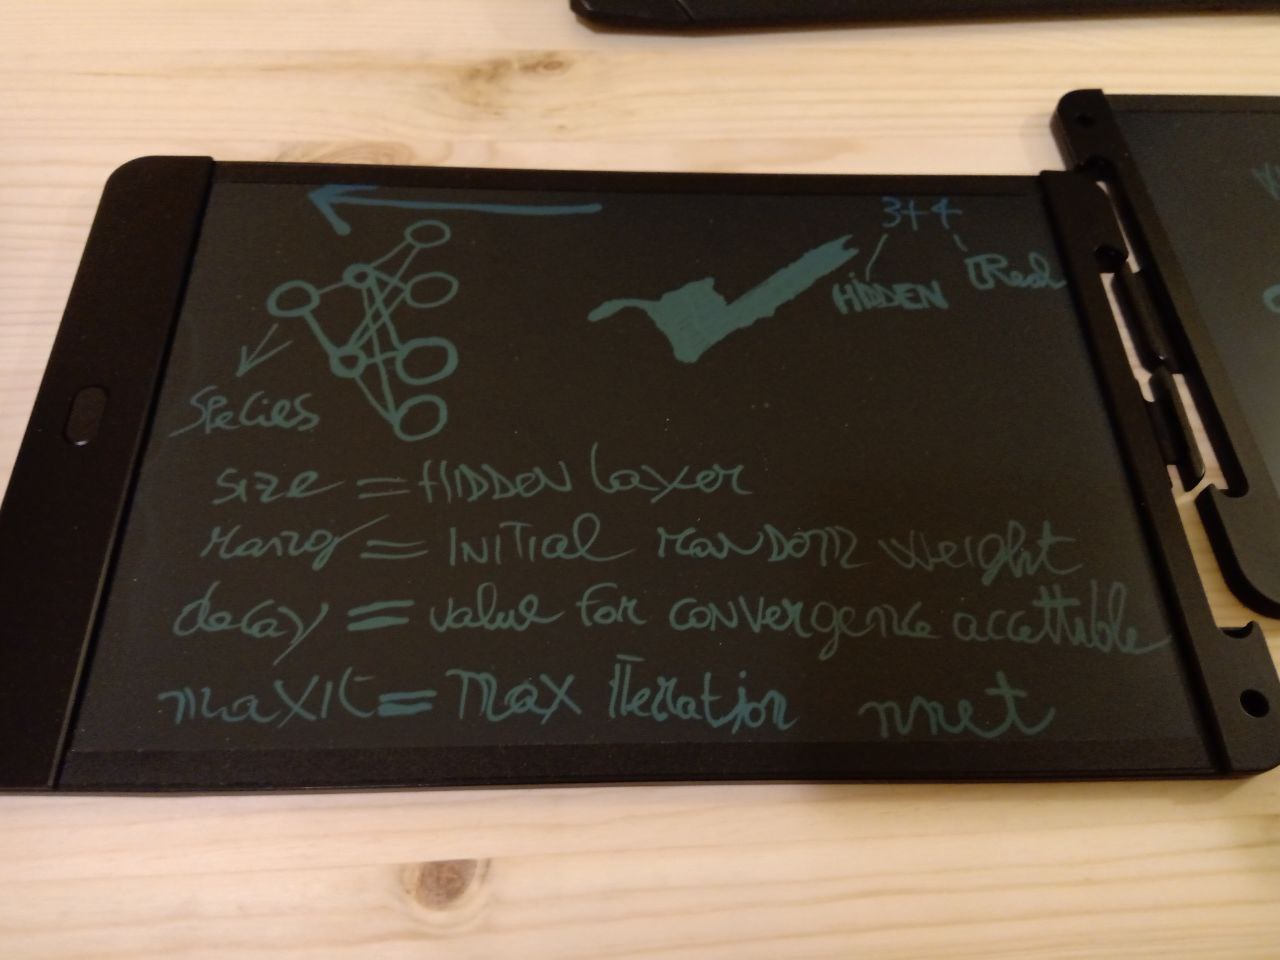 3+4
HIDDEN Real
Species
size = HIDDEN Layer
rang = INITIAL RANDOM weight
decay = value for convergence accettable
maxit = Max Iteration nnet